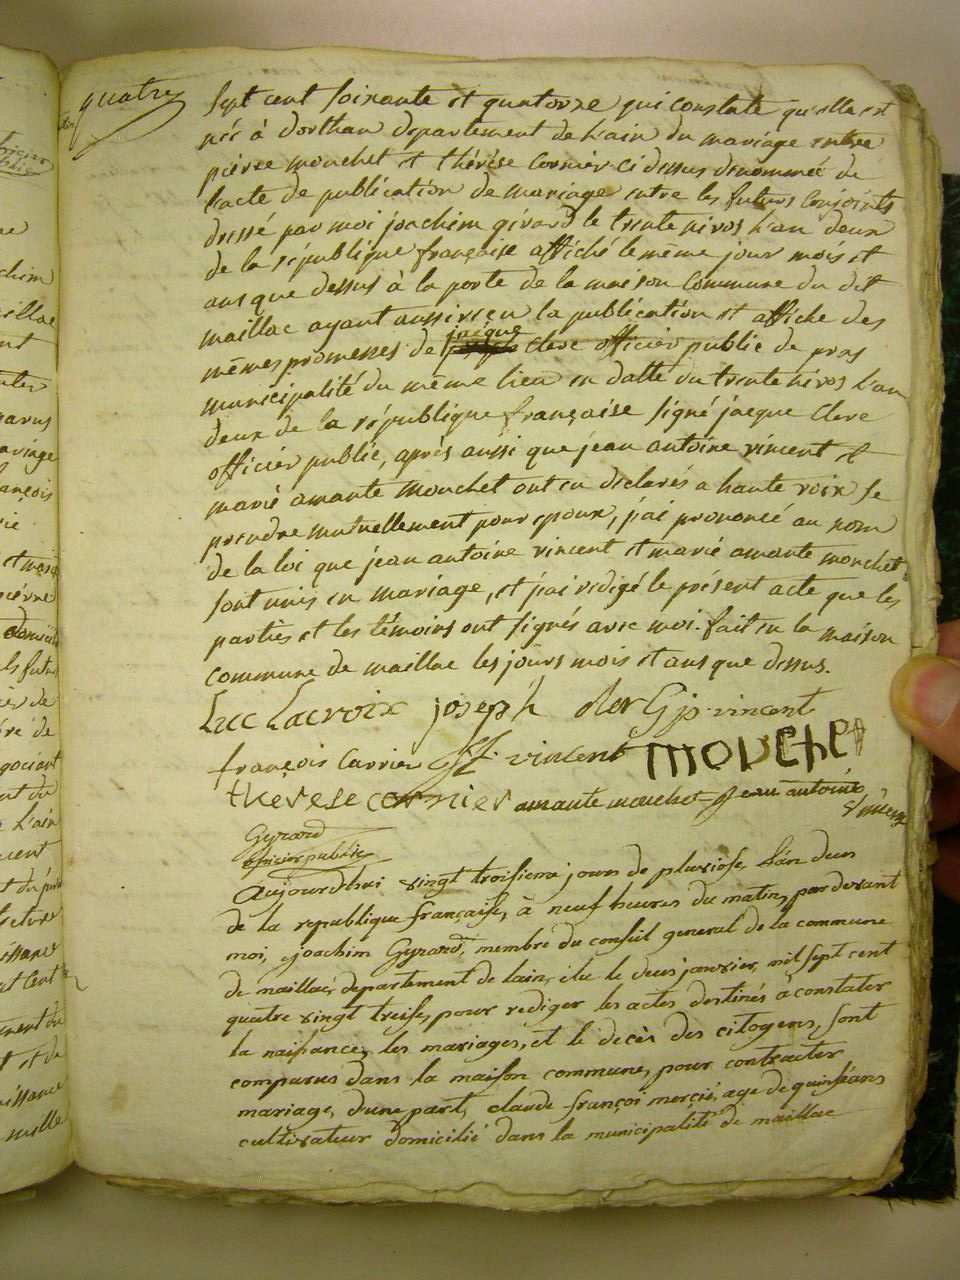 quatre
sept cent soixante et quatorze qui constate qu'elle est
née à dorthan departement de l'ain du mariage entre
pierre mouchet et thérèse Cornier ci dessus dénommée de
l'acte de publication de mariage entre les futurs Conjoints
dressé par moi joachim girard le trente nivos l'an deux
de la république françoise affiché le même jour mois et
ans que dessus à la porte de la maison Commune du dit
maillac ayant aussi vu la publication et affiche des
mêmes promesses de jacque Clerc officier public de pras
municipalité du même lieu en datte du trente nivos l'an
deux de la république françoise signé jacque Clerc
officier public, après aussi que jean antoine vincent et
marié amante Mouchet ont eu déclarés a haute voix se
prendre mutuellement pour epoux, j'ai prononcé au nom
de la loi que jean antoine vincent et marié amante mouchet
sont unis en mariage, et j'ai redigé le présent acte que les
partiés et les témoins ont signés avec moi. fait en la maison
commune de maillac les jours mois et ans que dessus.
Luc Lacroix joseph clerG jp. vincent
françois Carrier vincent MOUCHET
therese cornier amante mouchet jean antoine
vincent
Gyrard
oficier public
Aujourdhui vingt troisieme jours de pluviose l'an deux
de la republique française, à neuf heures du matin, pardevant
moi, joachim Gyrard, membre du conseil general de la commune
de maillac, departement de lain, élu le deux janvier, mil sept cent
quatre vingt treise, pour rediger les actes destinés à constater
la naissance, les mariages, et le décès des citoyens, sont
comparus dans la maison commune, pour contracter
mariage, d'une part, claude françoi mercié, age de quinseans
cultivateur domicilié dans la municipalité de maillac